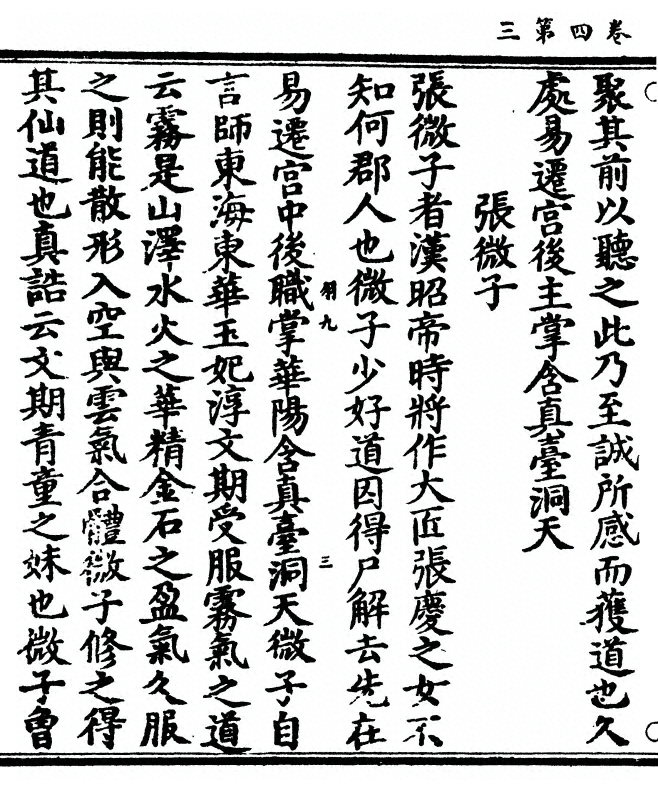 三第四卷
聚其前以聽之此乃至誠所感而獲道也久
處易遷宫後主掌含真臺洞天
張微子
張微子者漢昭帝時將作大匠張慶之女不
知何郡人也微子少好道因得尸解去先在
翔九
三
易遷宫中後職掌華陽含真臺洞天微子自
言師東海東華玉妃淳文期受服霧氣之道
云霧是山澤水火之華精金石之盈氣久服
之則能散形入空與雲氣合體微子修之得
其仙道也真誥云文期青童之妹也微子曾